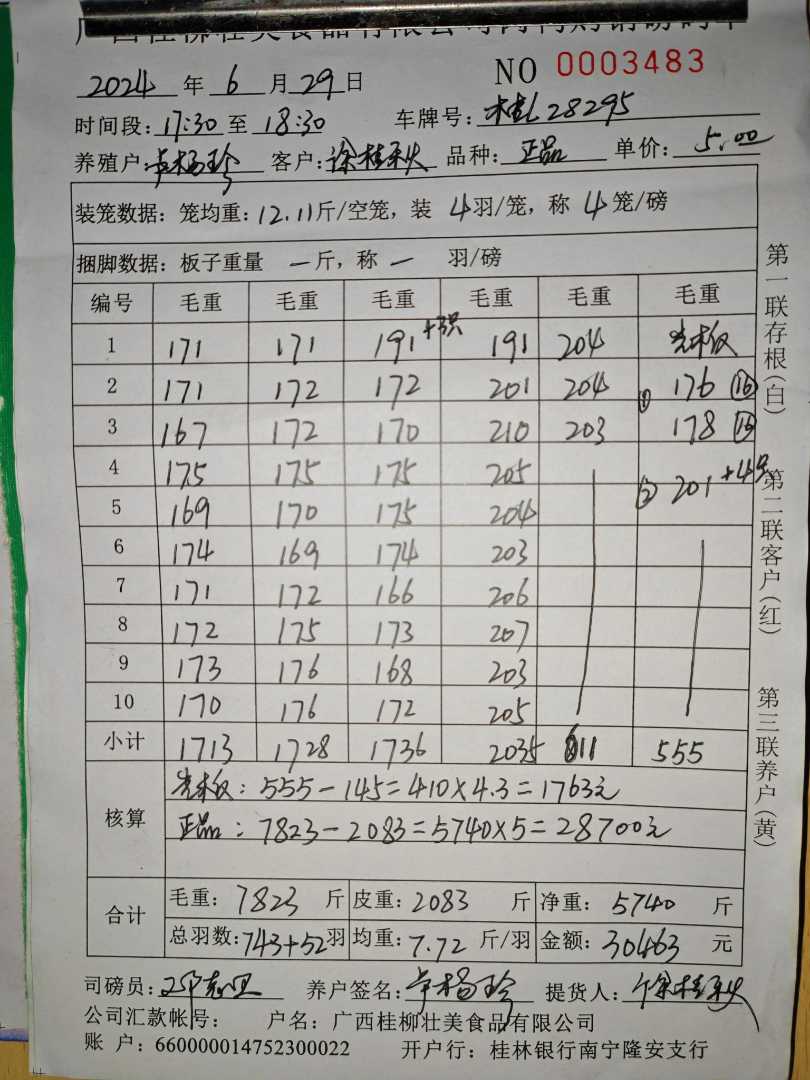 2024 年 6 月 29 日 NO 0003483
时间段: 17:30 至 18:30 车牌号: 桂L28295
养殖户: 卢杨珍 客户: 徐桂秋 品种: 正品 单价: 5.00
装笼数据: 笼均重: 12.11斤/空笼, 装 4羽/笼, 称 4笼/磅
捆脚数据: 板子重量 一斤, 称 一 羽/磅
编号 毛重 毛重 毛重 毛重 毛重 毛重
1 171 171 191+3只 191 204 光板
2 171 172 172 201 204 ① 176 ⑯
3 167 172 170 210 203 178 ⑮
4 175 175 175 205 ② 201+4只
5 169 170 175 204
6 174 169 174 203
7 171 172 166 206
8 172 175 173 207
9 173 176 168 203
10 170 176 172 205
小计 1713 1728 1736 2035 611 555
核算 光板: 555-145=410×4.3=1763元
正品: 7823-2083=5740×5=28700元
合计 毛重: 7823 斤 皮重: 2083 斤 净重: 5740 斤
总羽数: 743+52羽 均重: 7.72 斤/羽 金额: 30463 元
司磅员: 养户签名: 卢杨珍 提货人: 徐桂秋
公司汇款帐号: 户名: 广西桂柳壮美食品有限公司
账 户: 660000014752300022 开户行: 桂林银行南宁隆安支行
第一联存根(白)
第二联客户(红)
第三联养户(黄)